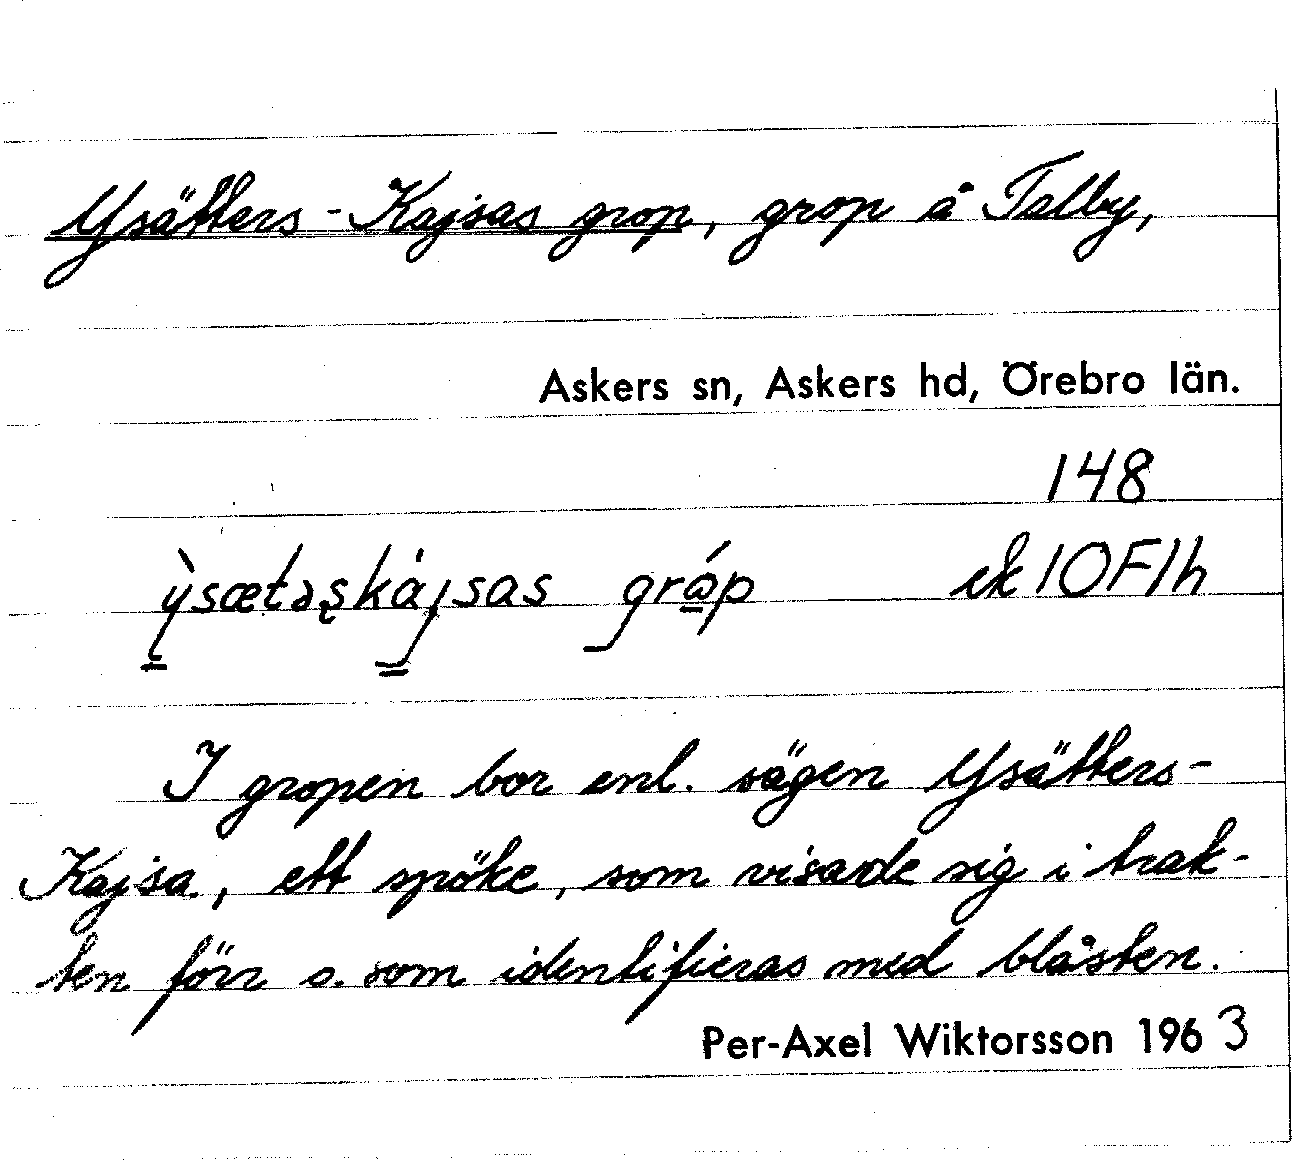 Ysätters-Kajsas grop, grop å Talby,
Askers sn, Askers hd, Örebro län.
148
ỳsætəşkájsas grɷ́p ek 10F1h
I gropen bor enl. sägen Ysätters-
Kajsa, ett spöke, som visade sig i trak-
ten förr o. som identifieras med blåsten.
Per-Axel Wiktorsson 1963